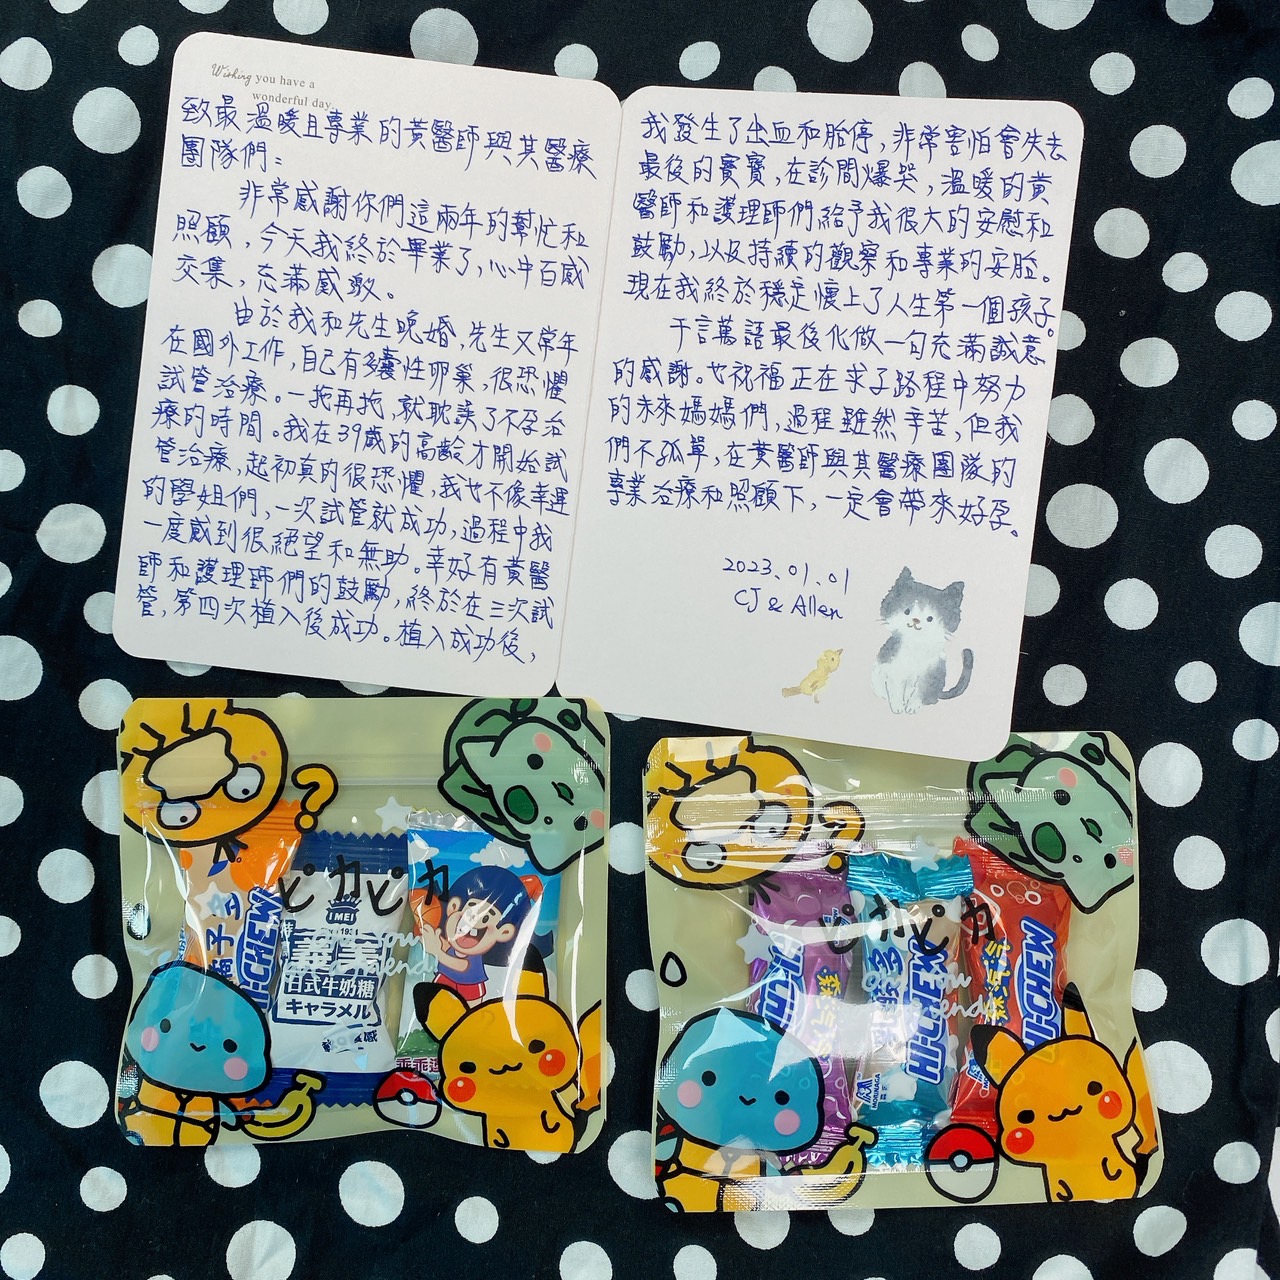 Wishing you have a
wonderful day.
致最溫暖且專業的黃醫師與其醫療
團隊們：
非常感謝你們這兩年的幫忙和
照顧，今天我終於畢業了，心中百感
交集，充滿感激。
由於我和先生晚婚，先生又常年
在國外工作，自己有多囊性卵巢，很恐懼
試管治療。一拖再拖，就耽誤了不孕治
療的時間。我在39歲的高齡才開始試
管治療，起初真的很恐懼，我也不像幸運
的學姐們，一次試管就成功，過程中我
一度感到很絕望和無助。幸好有黃醫
師和護理師們的鼓勵，終於在三次試
管，第四次植入後成功。植入成功後，
我發生了出血和胎停，非常害怕會失去
最後的寶寶，在診間爆哭，溫暖的黃
醫師和護理師們給予我很大的安慰和
鼓勵，以及持續的觀察和專業的安胎。
現在我終於穩定懷上了人生第一個孩子。
千言萬語最後化做一句充滿誠意
的感謝。也祝福正在求子路程中努力
的未來媽媽們，過程雖然辛苦，但我
們不孤單，在黃醫師與其醫療團隊的
專業治療和照顧下，一定會帶來好孕。
2023.01.01
CJ & Allen
ピカピカ
HI-CHEW
I MEI
1934
日式牛奶糖
キャラメル
乖乖
ピカピカ
HI-CHEW
多多
HI-CHEW
MORINAGA
HI-CHEW